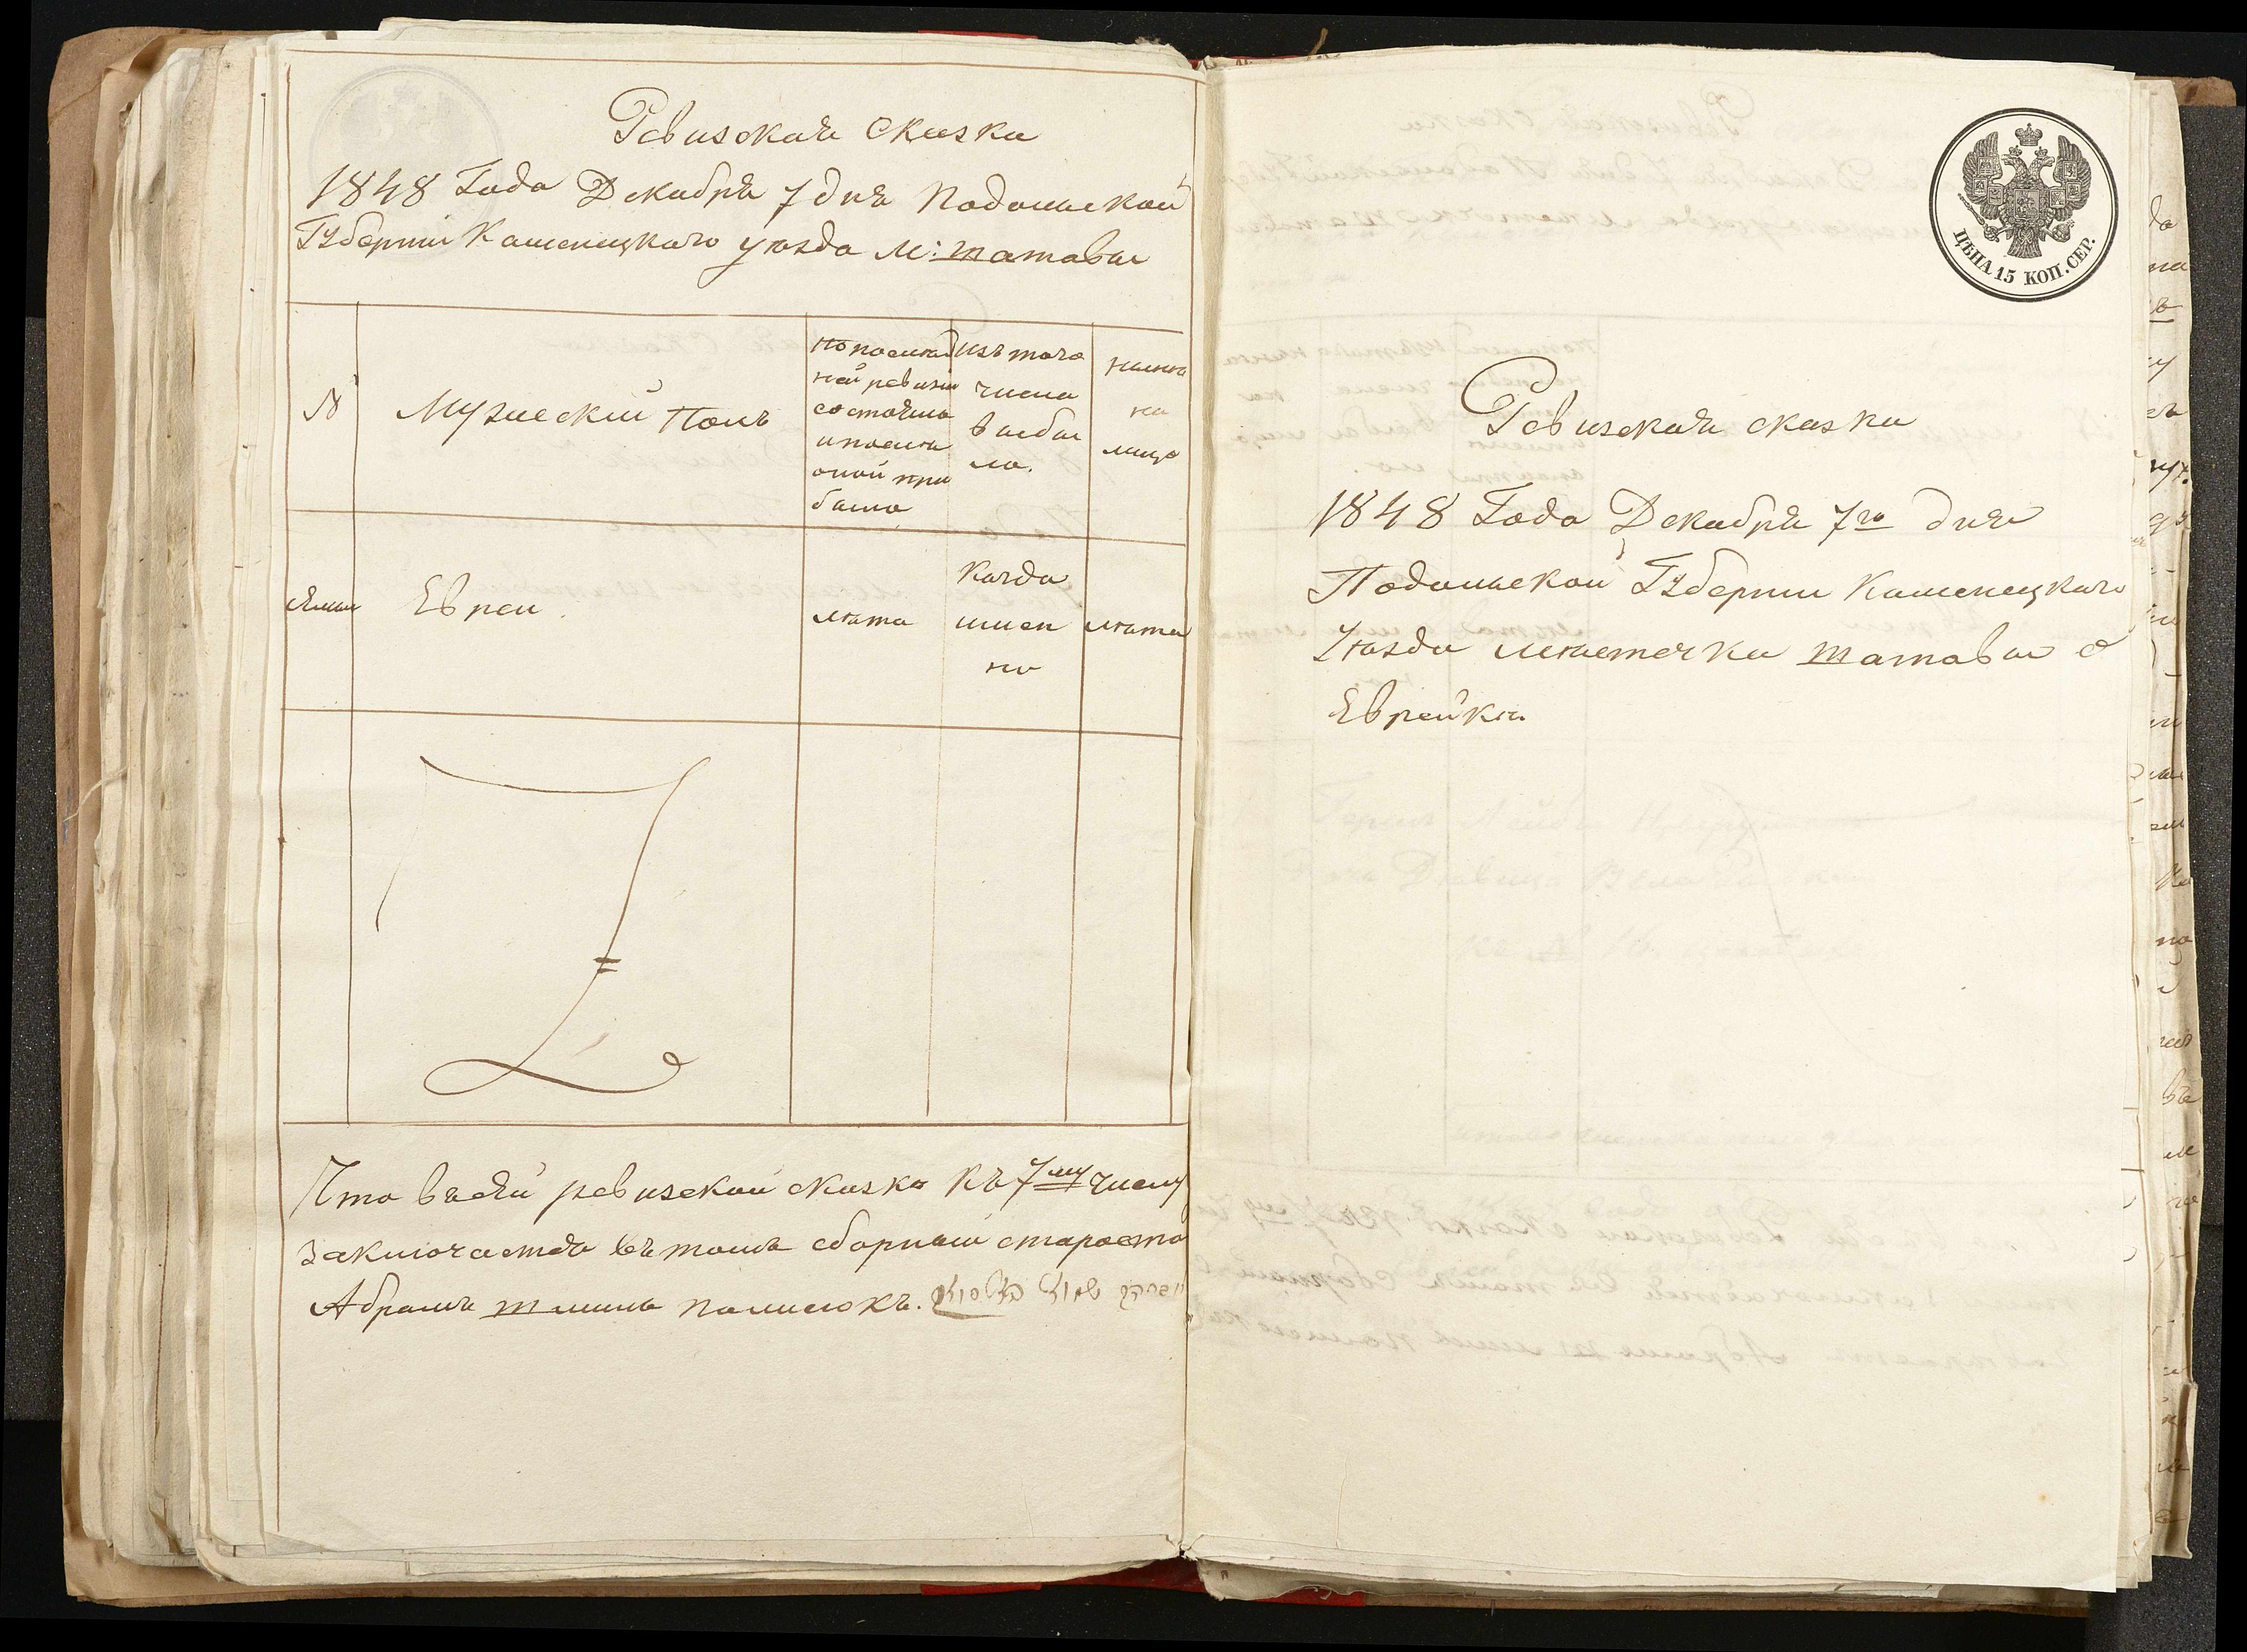 Ревизская Сказка
1848 Года Декабря 7 дня Подольской
Губернии Каменецкаго уезда м: Шатавы
№
Мужеский Полъ
по послед
ней ревизiи
состояло
и после
оной при
было
изъ того
числа
выбы
ло.
ныне
на
лицо
Евреи.
лета
Когда
имен
но
лета
Что въ сей ревизской сказке къ 7му числу
заключается въ томъ сборный староста
Абрамъ
Ревизская сказка
1848 Года Декабря 7го дня
Подольской Губернии Каменецкаго
Уезда местечка Шатавы о
Еврейке
ЦѢНА 15 КОП. СЕР.